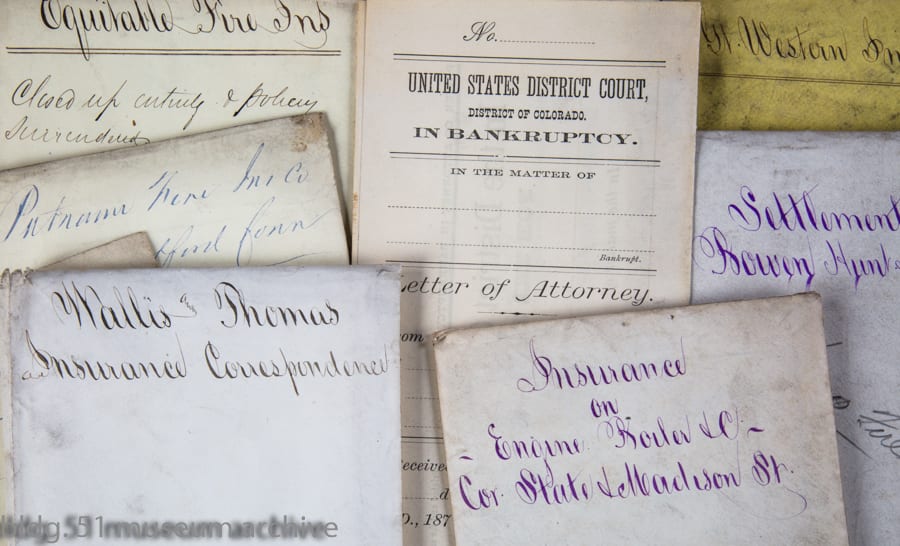 Equitable Fire Ins
Closed up entirely & policy
surrendered
Putnam Fire Ins Co
ford Conn
Wallis & Thomas
Insurance Correspondence
No.
UNITED STATES DISTRICT COURT,
DISTRICT OF COLORADO.
IN BANKRUPTCY.
IN THE MATTER OF
Bankrupt.
Letter of Attorney.
om
eceive
d
D., 187
Gt. Western In
Settlement
Bowen Hunt
Insurance
on
- Engine Boiler & C. -
Cor. State & Madison St.
bldg 551museumarchive